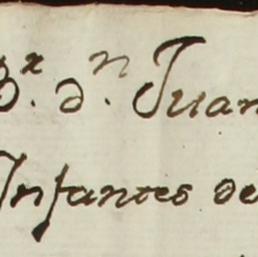 Bˣ. dⁿ. Juan
Infantes de